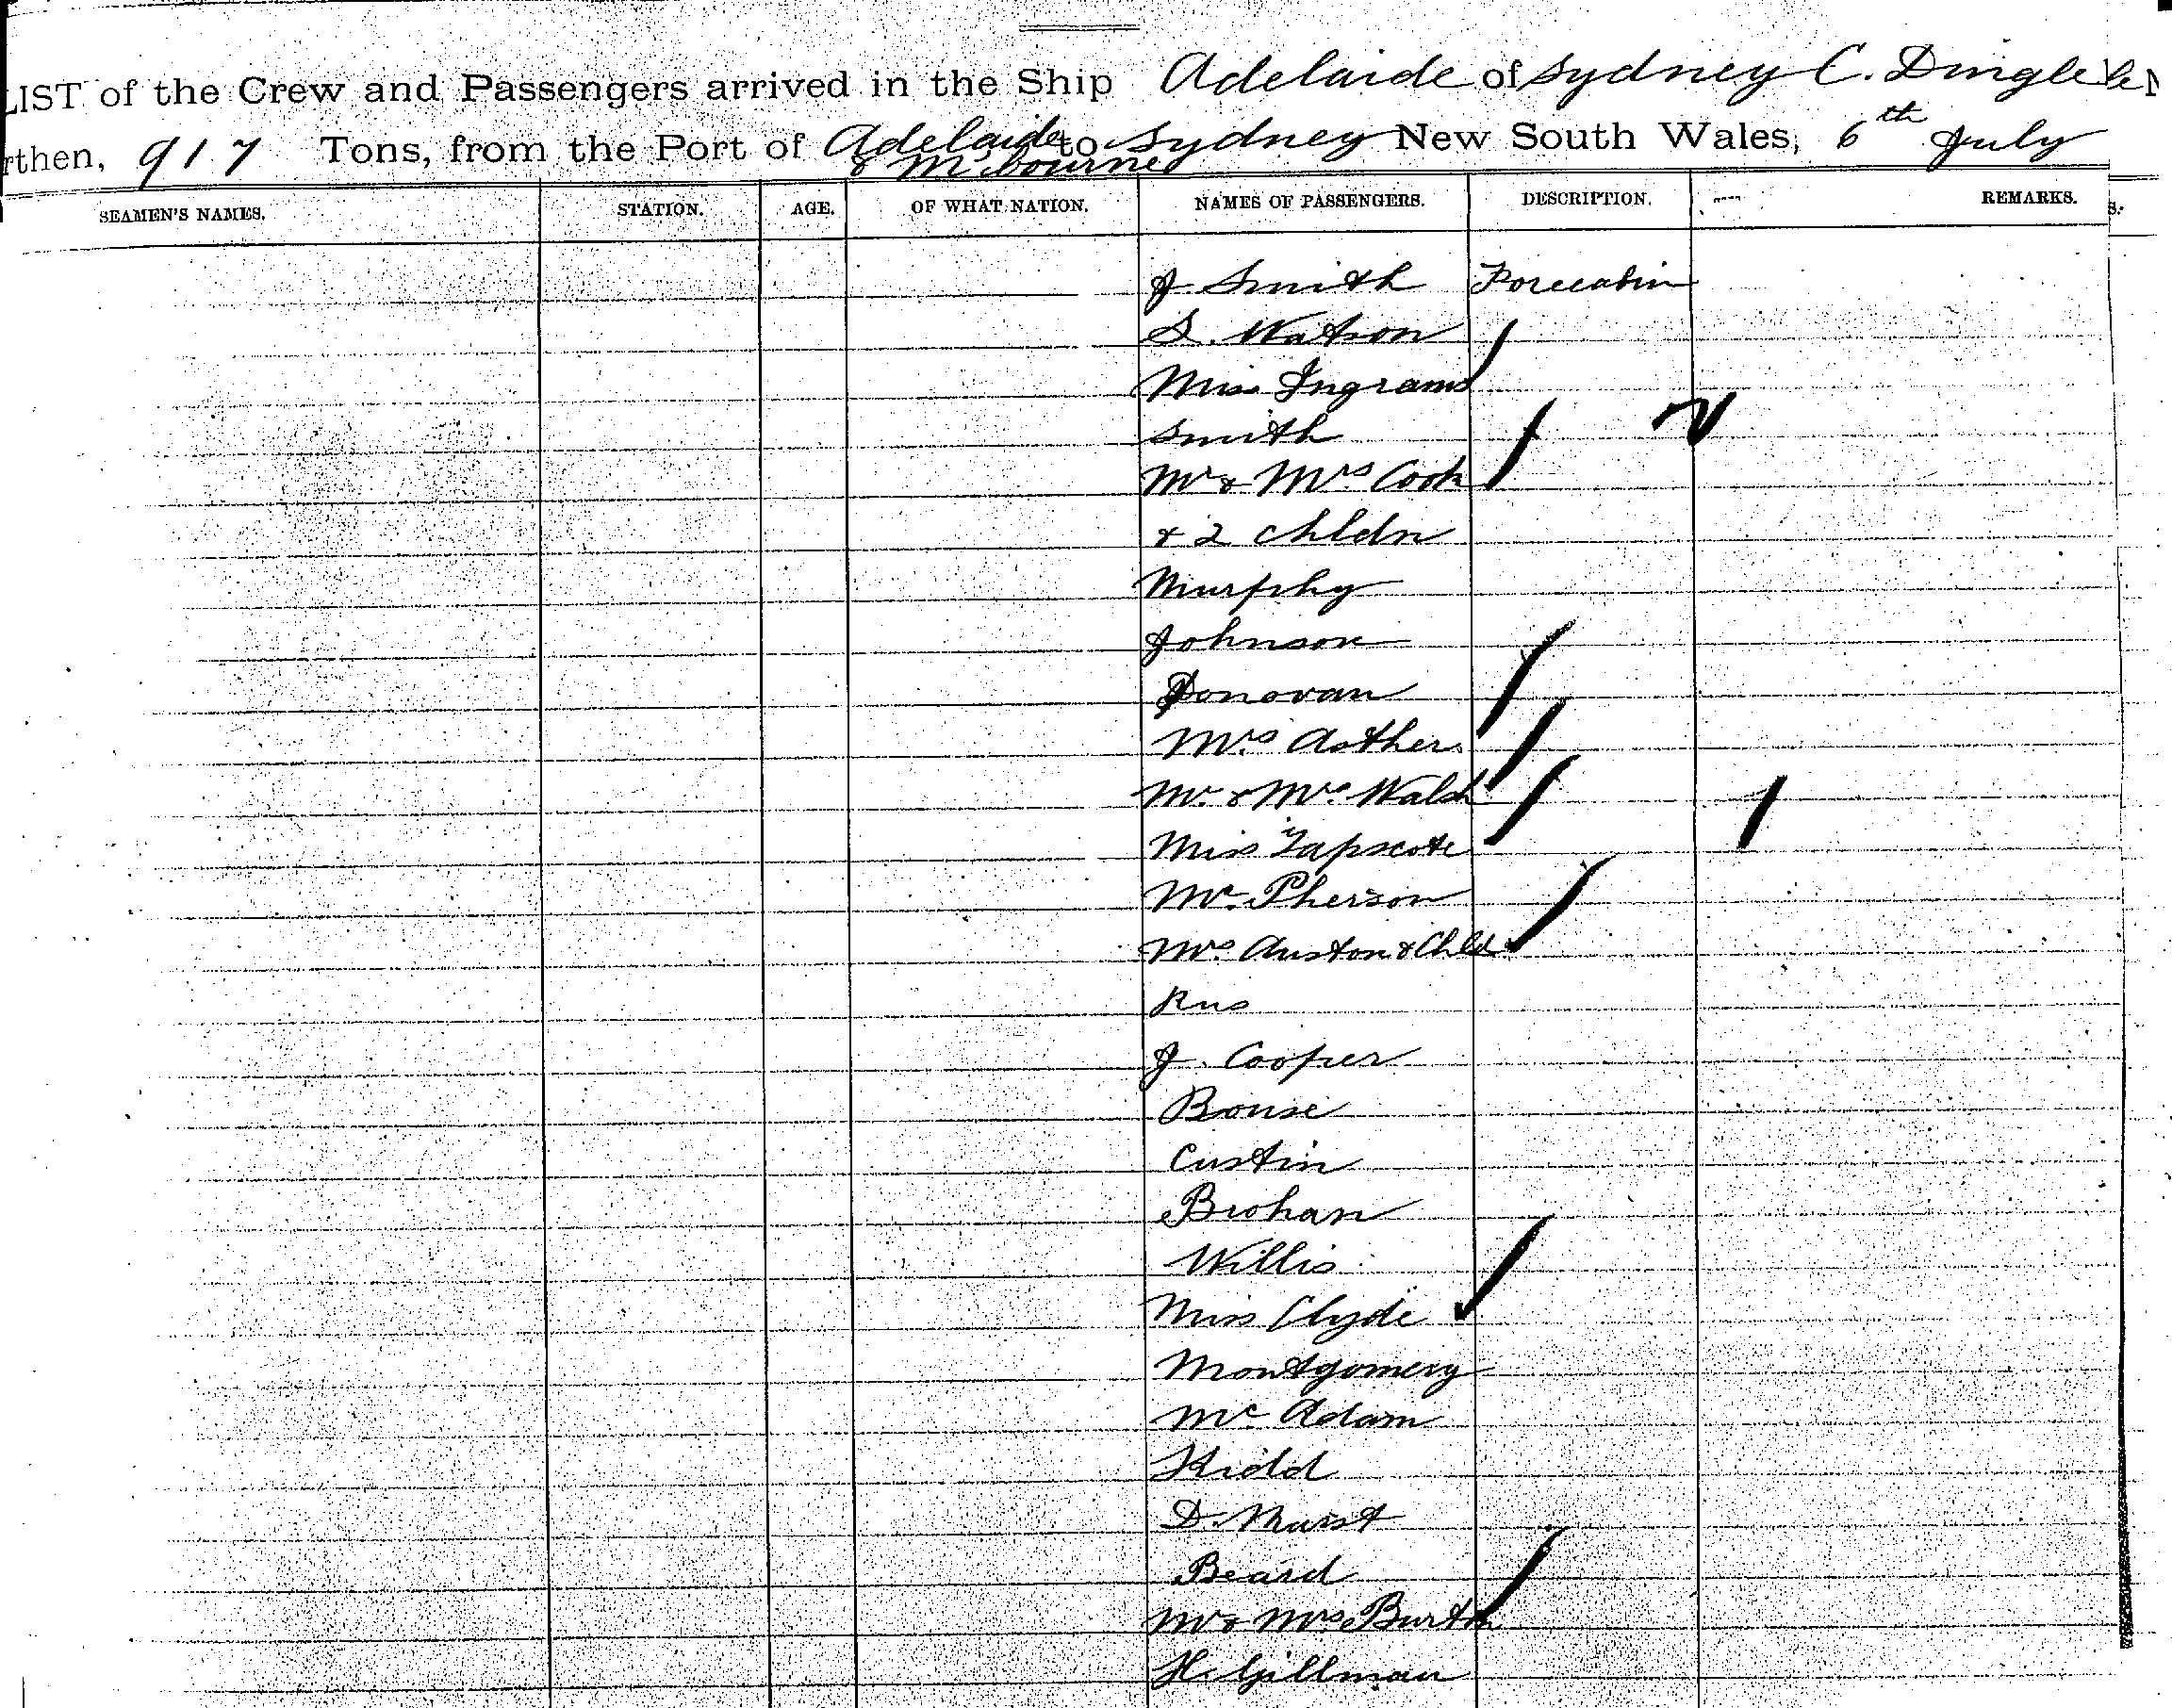 LIST of the Crew and Passengers arrived in the Ship Adelaide of Sydney C. Dingle
rthen, 917 Tons, from the Port of Adelaide & Melbourne to Sydney New South Wales, 6th July
SEAMEN'S NAMES. STATION. AGE. OF WHAT NATION. NAMES OF PASSENGERS. DESCRIPTION. REMARKS.
J Smith Forecabin
S. Watson
Miss Ingrams
Smith
Mr & Mrs Cook
& 2 Chldn
Murphy
Johnson
Donovan
Mrs Asther
Mr & Mrs Walsh
Miss Tapscote
McPherson
Mrs Auston & Chld
J. Cooper
Bouse
Custin
Brohan
Willis
Miss Clyde
Montgomery
McAdam
Kidd
D.
Beard
Mr & Mrs Burton
H. Gillman